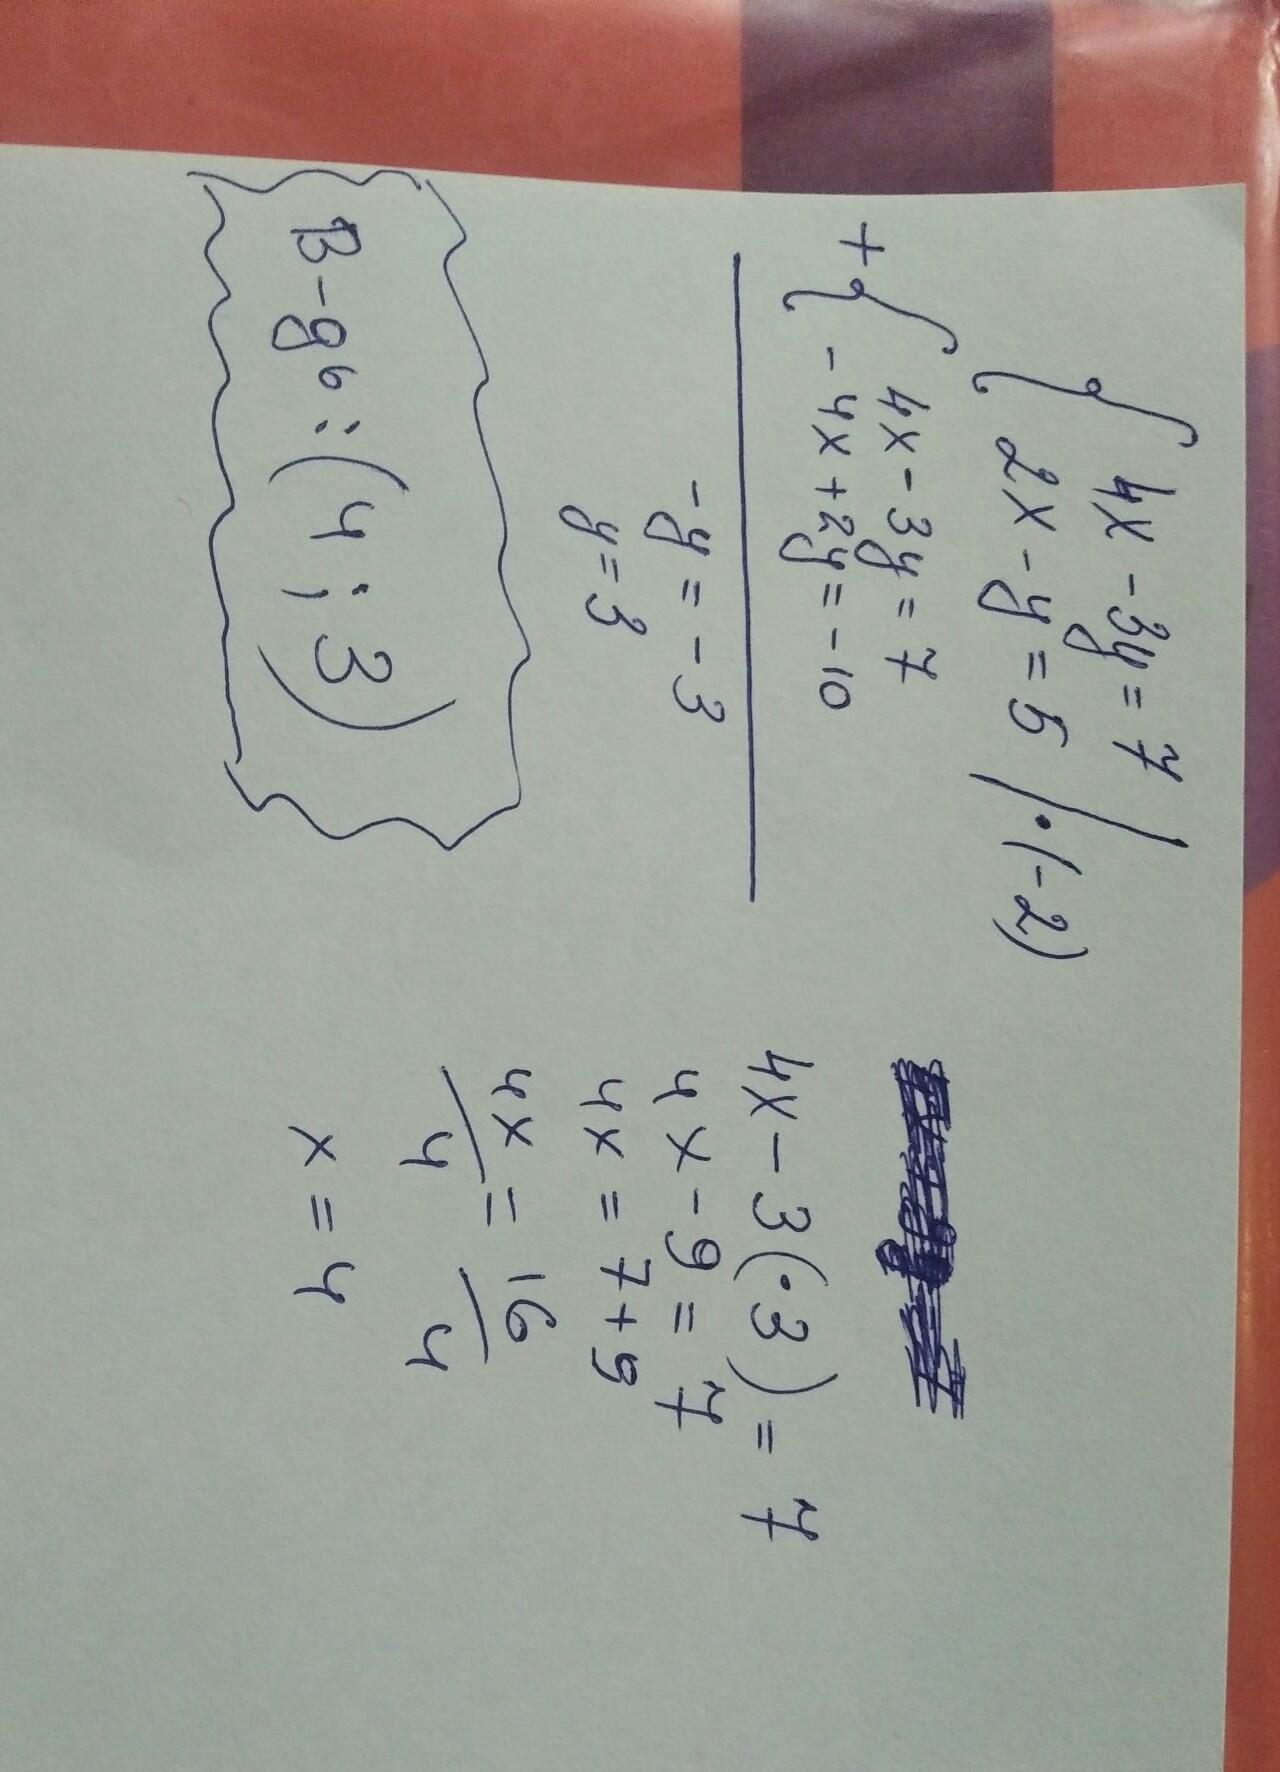 { 4x - 3y = 7
2x - y = 5 | · (-2)
+ { 4x - 3y = 7
- 4x + 2y = - 10
- y = - 3
y = 3
В-дь: (4; 3)
4x - 3(·3) = 7
4x - 9 = 7
4x = 7 + 9
4x/4 = 16/4
x = 4